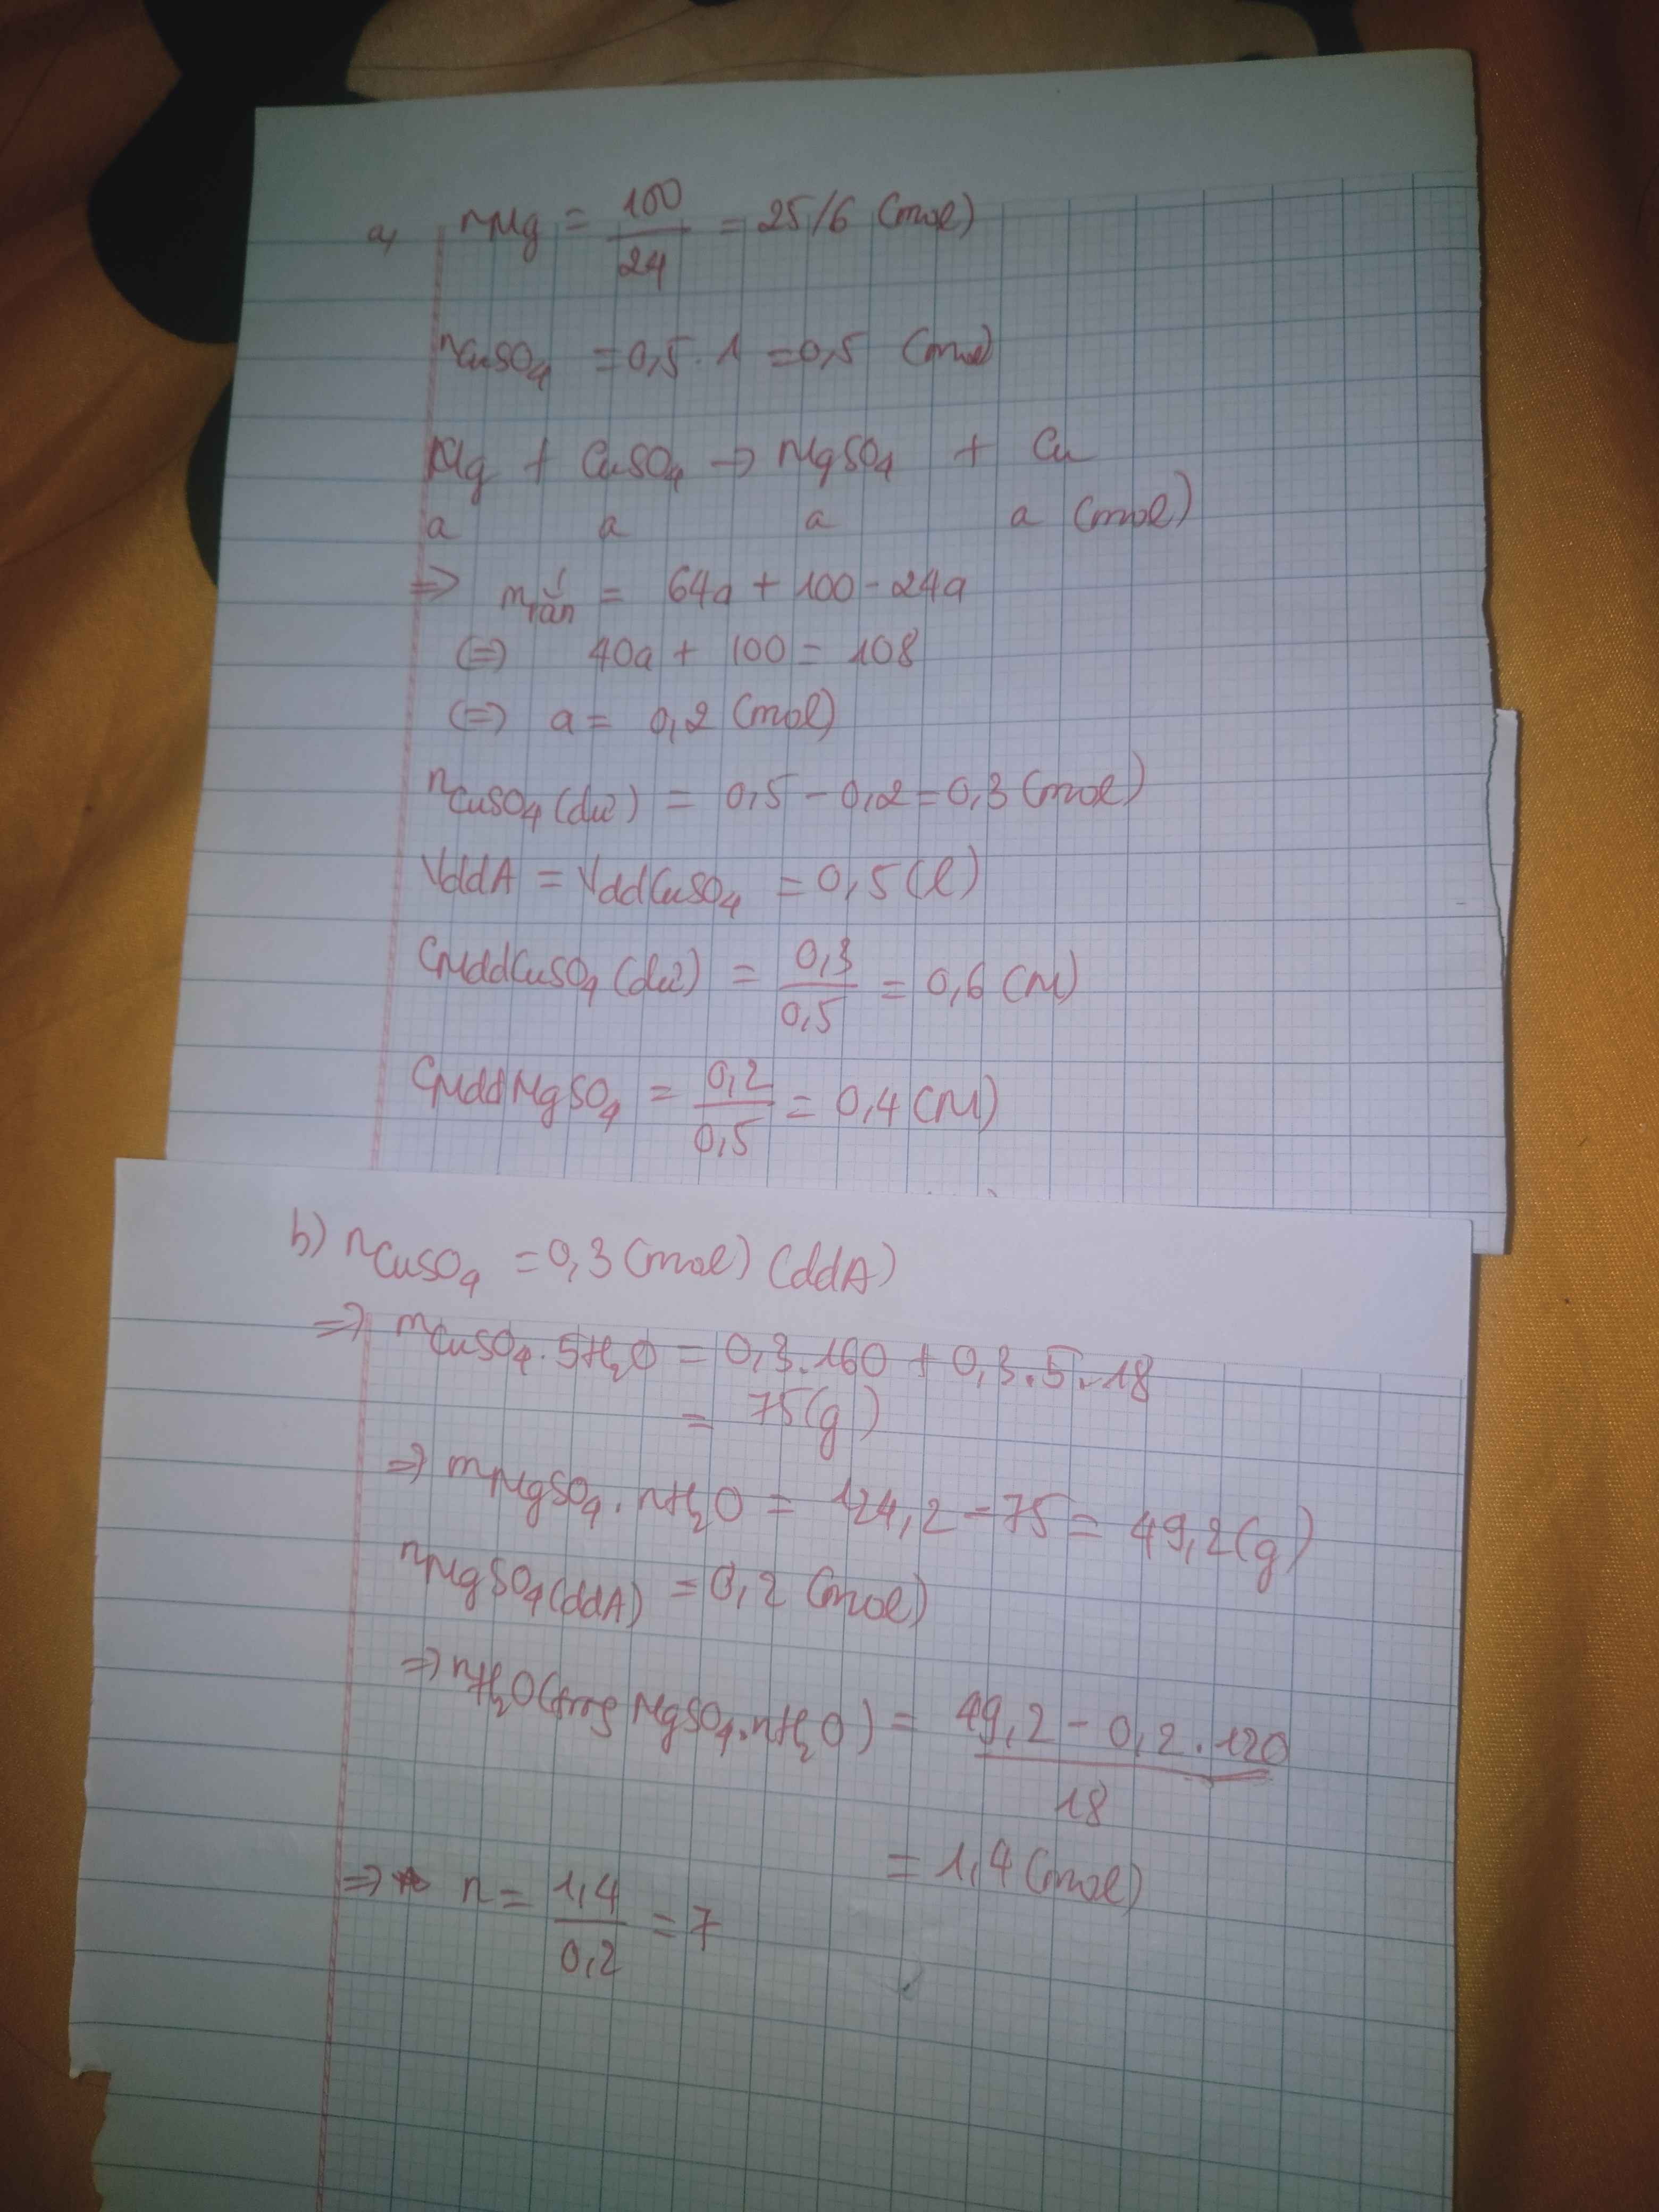 a, nMg = 100/24 = 25/6 (mol)
nCuSO4 = 0,5 . 1 = 0,5 (mol)
Mg + CuSO4 → MgSO4 + Cu
a a a a (mol)
=> m rắn = 64a + 100 - 24a
(=) 40a + 100 = 108
(=) a = 0,2 (mol)
nCuSO4 (dư) = 0,5 - 0,2 = 0,3 (mol)
VddA = VddCuSO4 = 0,5 (l)
CMddCuSO4 (dư) = 0,3/0,5 = 0,6 (M)
CMddMgSO4 = 0,2/0,5 = 0,4 (M)
b) nCuSO4 = 0,3 (mol) (ddA)
=> mCuSO4.5H2O = 0,3.160 + 0,3.5.18
= 75 (g)
=> mMgSO4.nH2O = 124,2 - 75 = 49,2 (g)
nMgSO4 (ddA) = 0,2 (mol)
=> nH2O (trong MgSO4.nH2O) = (49,2 - 0,2.120)/18
= 1,4 (mol)
=> n = 1,4/0,2 = 7